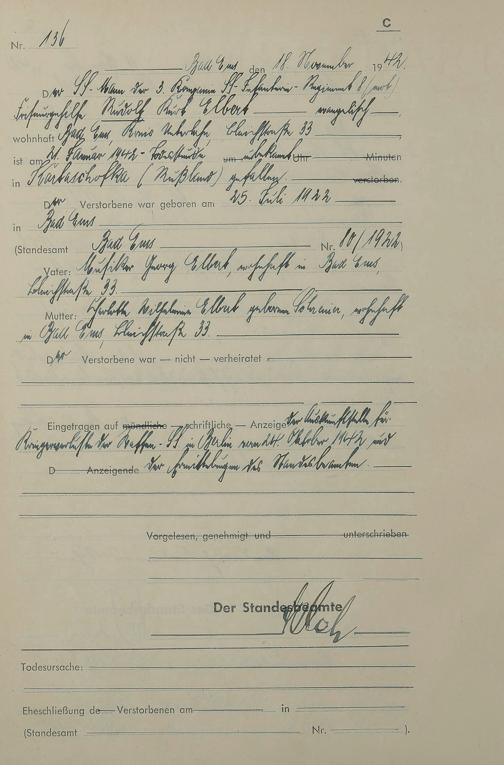 C
Nr. 136
Bad Ems, den 18. November 1942.
Der SS-Mann der 3. Kompanie SS-Infanterie-Regiment 8 (mot)
Friseurgehilfe Rudolf Kurt Elbert evangelisch
wohnhaft Bad Ems, Kreis Unterlahn, Bleichstraße 33
ist am 21. Januar 1942 - Todesstunde um unbekannt Uhr Minuten
in (Rußland) gefallen verstorben.
Der Verstorbene war geboren am 25. Juli 1922
in Bad Ems
(Standesamt Bad Ems Nr. 80/1922)
Vater: Musiker Georg Elbert, wohnhaft in Bad Ems,
Bleichstraße 33
Mutter: Charlotte Wilhelmine Elbert geborene, wohnhaft
in Bad Ems, Bleichstraße 33
Der Verstorbene war — nicht — verheiratet
Eingetragen auf mündliche — schriftliche — Anzeige der Auskunftstelle für
Kriegerverluste der Waffen-SS in Berlin vom 24. Oktober 1942 und
D Anzeigende der Ermittelungen des Standesbeamten.
Vorgelesen, genehmigt und unterschrieben
Der Standesbeamte
Todesursache:
Eheschließung de Verstorbenen am in
(Standesamt Nr. ).